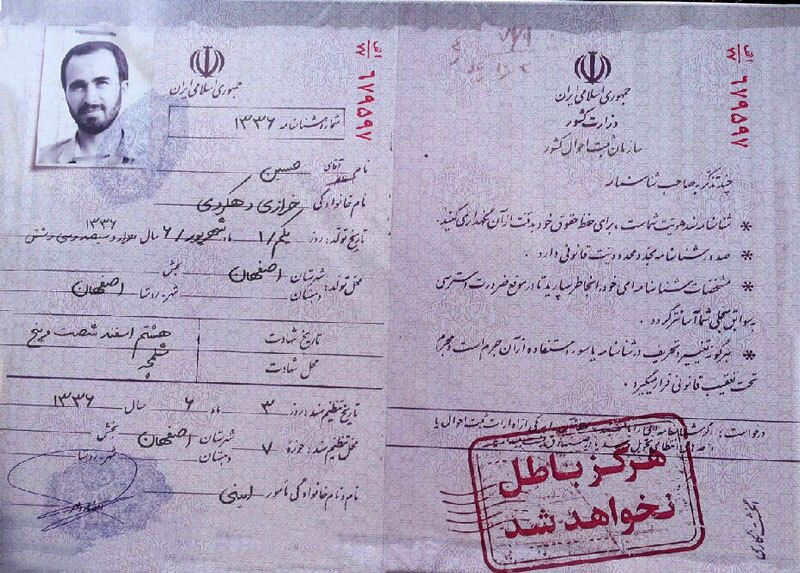 الف
۱۷
۶۷۹۵۹۷
جمهوری اسلامی ایران
شماره شناسنامه ۱۳۳۶
نام آقای حسین
نام خانوادگی خرازی دهکردی
۱۳۳۶
تاریخ تولد: روز یکم/۱ ماه شهریور/۶ سال هزار و سیصد و سی و شش
محل تولد: شهرستان اصفهان بخش
دهستان شهر-روستا اصفهان
تاریخ شهادت هشتم اسفند شصت و پنج
محل شهادت شلمچه
تاریخ تنظیم سند: روز ۳ ماه ۶ سال ۱۳۳۶
محل تنظیم سند: حوزه ۷ شهرستان اصفهان بخش
دهستان شهر-روستا
نام و نام خانوادگی مأمور امینی
الف
۱۷
۶۷۹۵۹۷
جمهوری اسلامی ایران
وزارت کشور
سازمان ثبت احوال کشور
چند تذکر به صاحب شناسنامه
* شناسنامه سند هویت شماست، برای حفظ حقوق خود بدقت از آن نگهداری کنید.
* صدور شناسنامه مجدد محدودیت قانونی دارد.
* مشخصات شناسنامه‌ای خود را بخاطر بسپارید تا در موقع ضرورت دسترسی
به سوابق سجلی شما آسانتر گردد.
* هرگونه تغییر و تحریف در شناسنامه یا سوء استفاده از آن جرم است و مجرم
تحت تعقیب قانونی قرار میگیرد.
درخواست: اگر شناسنامه‌ای را از ادارات ثبت احوال یا
هرگز باطل
نخواهد شد
انگشت نگاری